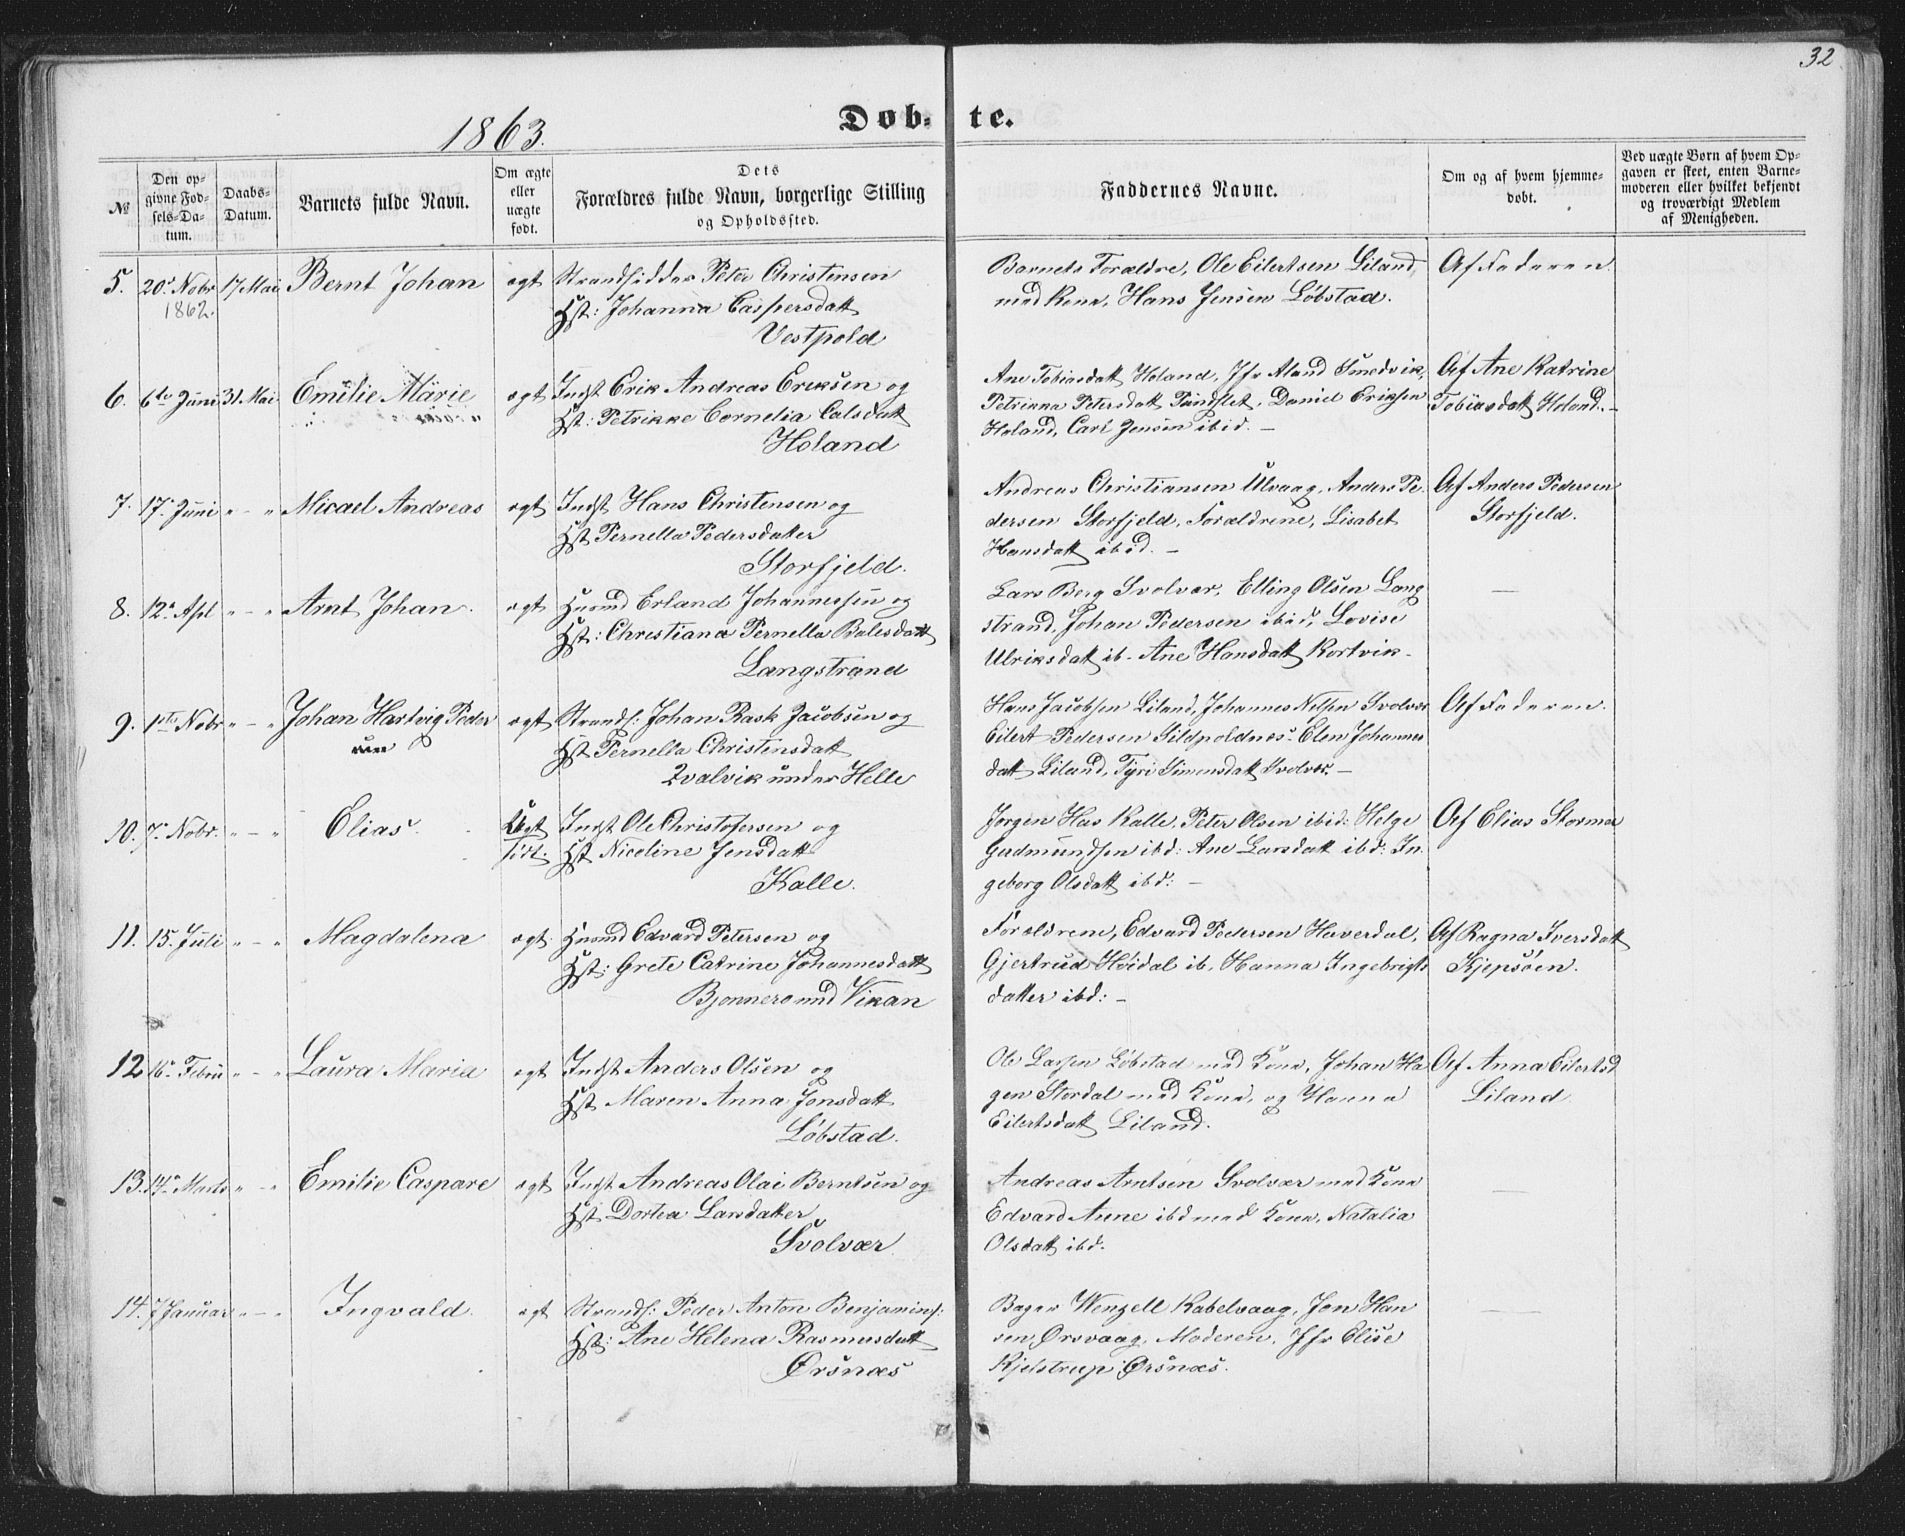 32
1863.
Døb-te.
№
Den op-
givne Fød-
sels-Da-
tum.
Daabs-
Datum.
Barnets fulde Navn.
Om ægte
eller
uægte
født.
Dets
Forældres fulde Navn, borgerlige Stilling
og Opholdssted.
Faddernes Navne.
Om og af hvem hjemme-
døbt.
Ved uægte Børn af hvem Op-
gaven er skeet, enten Barne-
moderen eller hvilket bekjendt
og troværdigt Medlem
af Menigheden.
5. 20. Nobr 17 Mai Bernt Johan ægt Strandsidder Peter Christensen
1862.
Hst: Johanna Caspersdatt
Vestpold
Barnets Forældre, Ole Eilertsen Liland,
med Kone, Hans Jensen Løbstad.
Af Faderen.
6. 6te Juni 31. Mai Emilie Marie ægt Indst Erik Andreas Eriksen og
Hst: Petrikke Cornelia Calsdatt
Holand
Ane Tobiasdatt Holand, Jfr Aland Smedvik,
Petrikka Petersdatt Pundslet, Daniel Eriksen
Holand, Carl Jensen ibid. –
Af Ane Katrine
Tobiasdatt Holand. –
7. 17. Juni " – " Micael Andreas ægt Indst Hans Christensen og
Hst Pernella Pedersdatter
Storfjeld.
Andreas Christiansen Ulvaag, Anders Pe-
dersen Storfjeld, Forældrene, Lisabet
Hansdatt ibid. –
Af Anders Pedersen
Storfjeld.
8. 12. Apl " – " Arnt Johan. ægt Husmd Erland Johannessen og
Hst: Christiana Pernella Balesdatt
Langstrand
Lars Berg Svolvær, Elling Olsen Lang
strand, Johan Pedersen ibid, Lovise
Ulriksdatt ib- Ane Hansdatt Kortvik-
—
9. 1ste Nobr " – " Johan Hartvig Peder ægt Strands: Johan Rask Jacobsen og
Hst Pernella Christensdatt
Qvalvik under Helle
Hans Jacobsen Liland, Johannes Nilsen Svolvær
Eilert Pedersen Sildpoldnes. Elen Johannes
datt Liland, Tyri Simensdatt Svolvær. –
Af Faderen.
10. 7. Nobr. " – " Elias. Uægt Indst Ole Christofersen og
født. Hst Nicoline Jensdatt
Kalle.
Jørgen Has Kalle, Peter Olsen ibid: Helge
Gudmundsen ibd: Ane Larsdatt ibd: In-
geborg Olsdatt ibd: –
Af Elias Stormer
11. 15. Juli " – " Magdalena ægt. Husmd Edvard Petersen og
Hst: Grete Catrine Johannesdatt
Bjonnerø und Vikan
Forældrene, Edvard Pedersen Haverdal,
Gjertrud Høidal ib, Hanna Ingebrigts
datter ibd: –
Af Ragna Iversdatt
Kjepsøen.
12 16. Febru " – " Laura Maria ægt Indst Anders Olsen og
Hst Maren Anna Jonsdatt
Løbstad.
Ole Larsen Løbstad med Kone, Johan Ha
gen Stordal med Kone, og Hanna
Eilertsdatt Liland.
Af Anna Eilertsd
Liland
13. 14. Marts " – " Emilie Caspare ægt Indst Andreas Olai Berntsen og
Hst Dortea Larsdatter
Svolvær
Andreas Arntsen Svolvær med Kone
Edvard Anne ibd med Kone, Natalia
Olsdatt ibd.
—
14. 7 Januar " – " Ingvald. ægt Strands: Peder Anton Benjamins:
Hst: Ane Helena Rasmusdatt
Ørsnæs
Bager Wenzell Kabelvaag, Jon Han
sen Ørsvaag, Moderen, Jfr Elise
Kjelstrup Ørsnæs.
—